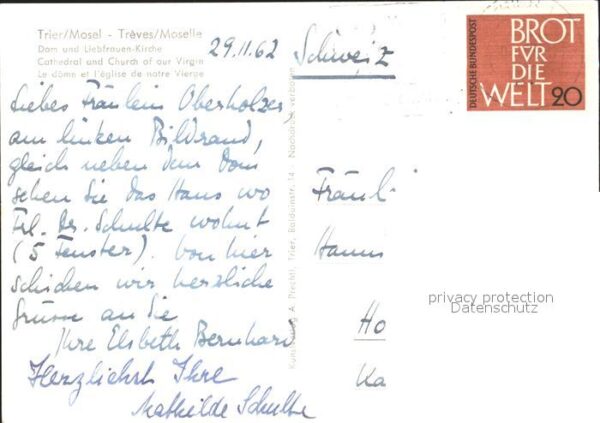 Trier/Mosel - Trèves/Moselle
Dom und Liebfrauen-Kirche
Cathedral and Church of our Virgin
Le dôme et l'église de notre Vierge
29.11.62
Schweiz
DEUTSCHE BUNDESPOST
BROT
FÜR
DIE
WELT 20
Liebes Fräulein Oberholzer
am linken Bildrand,
gleich neben dem Dom
sehen Sie das Haus wo
Frl. Dr. Schulte wohnt
(5 Fenster). Von hier
schicken wir herzliche
Grüsse an Sie
Ihre Elsbeth Bernhard
Herzlichst Ihre
Mathilde Schulte
Kunstverlag A. Prechtl, Trier, Balduinstr. 14 - Nachdruck verboten
Fräul
Hanni
Ho
Ka
privacy protection
Datenschutz